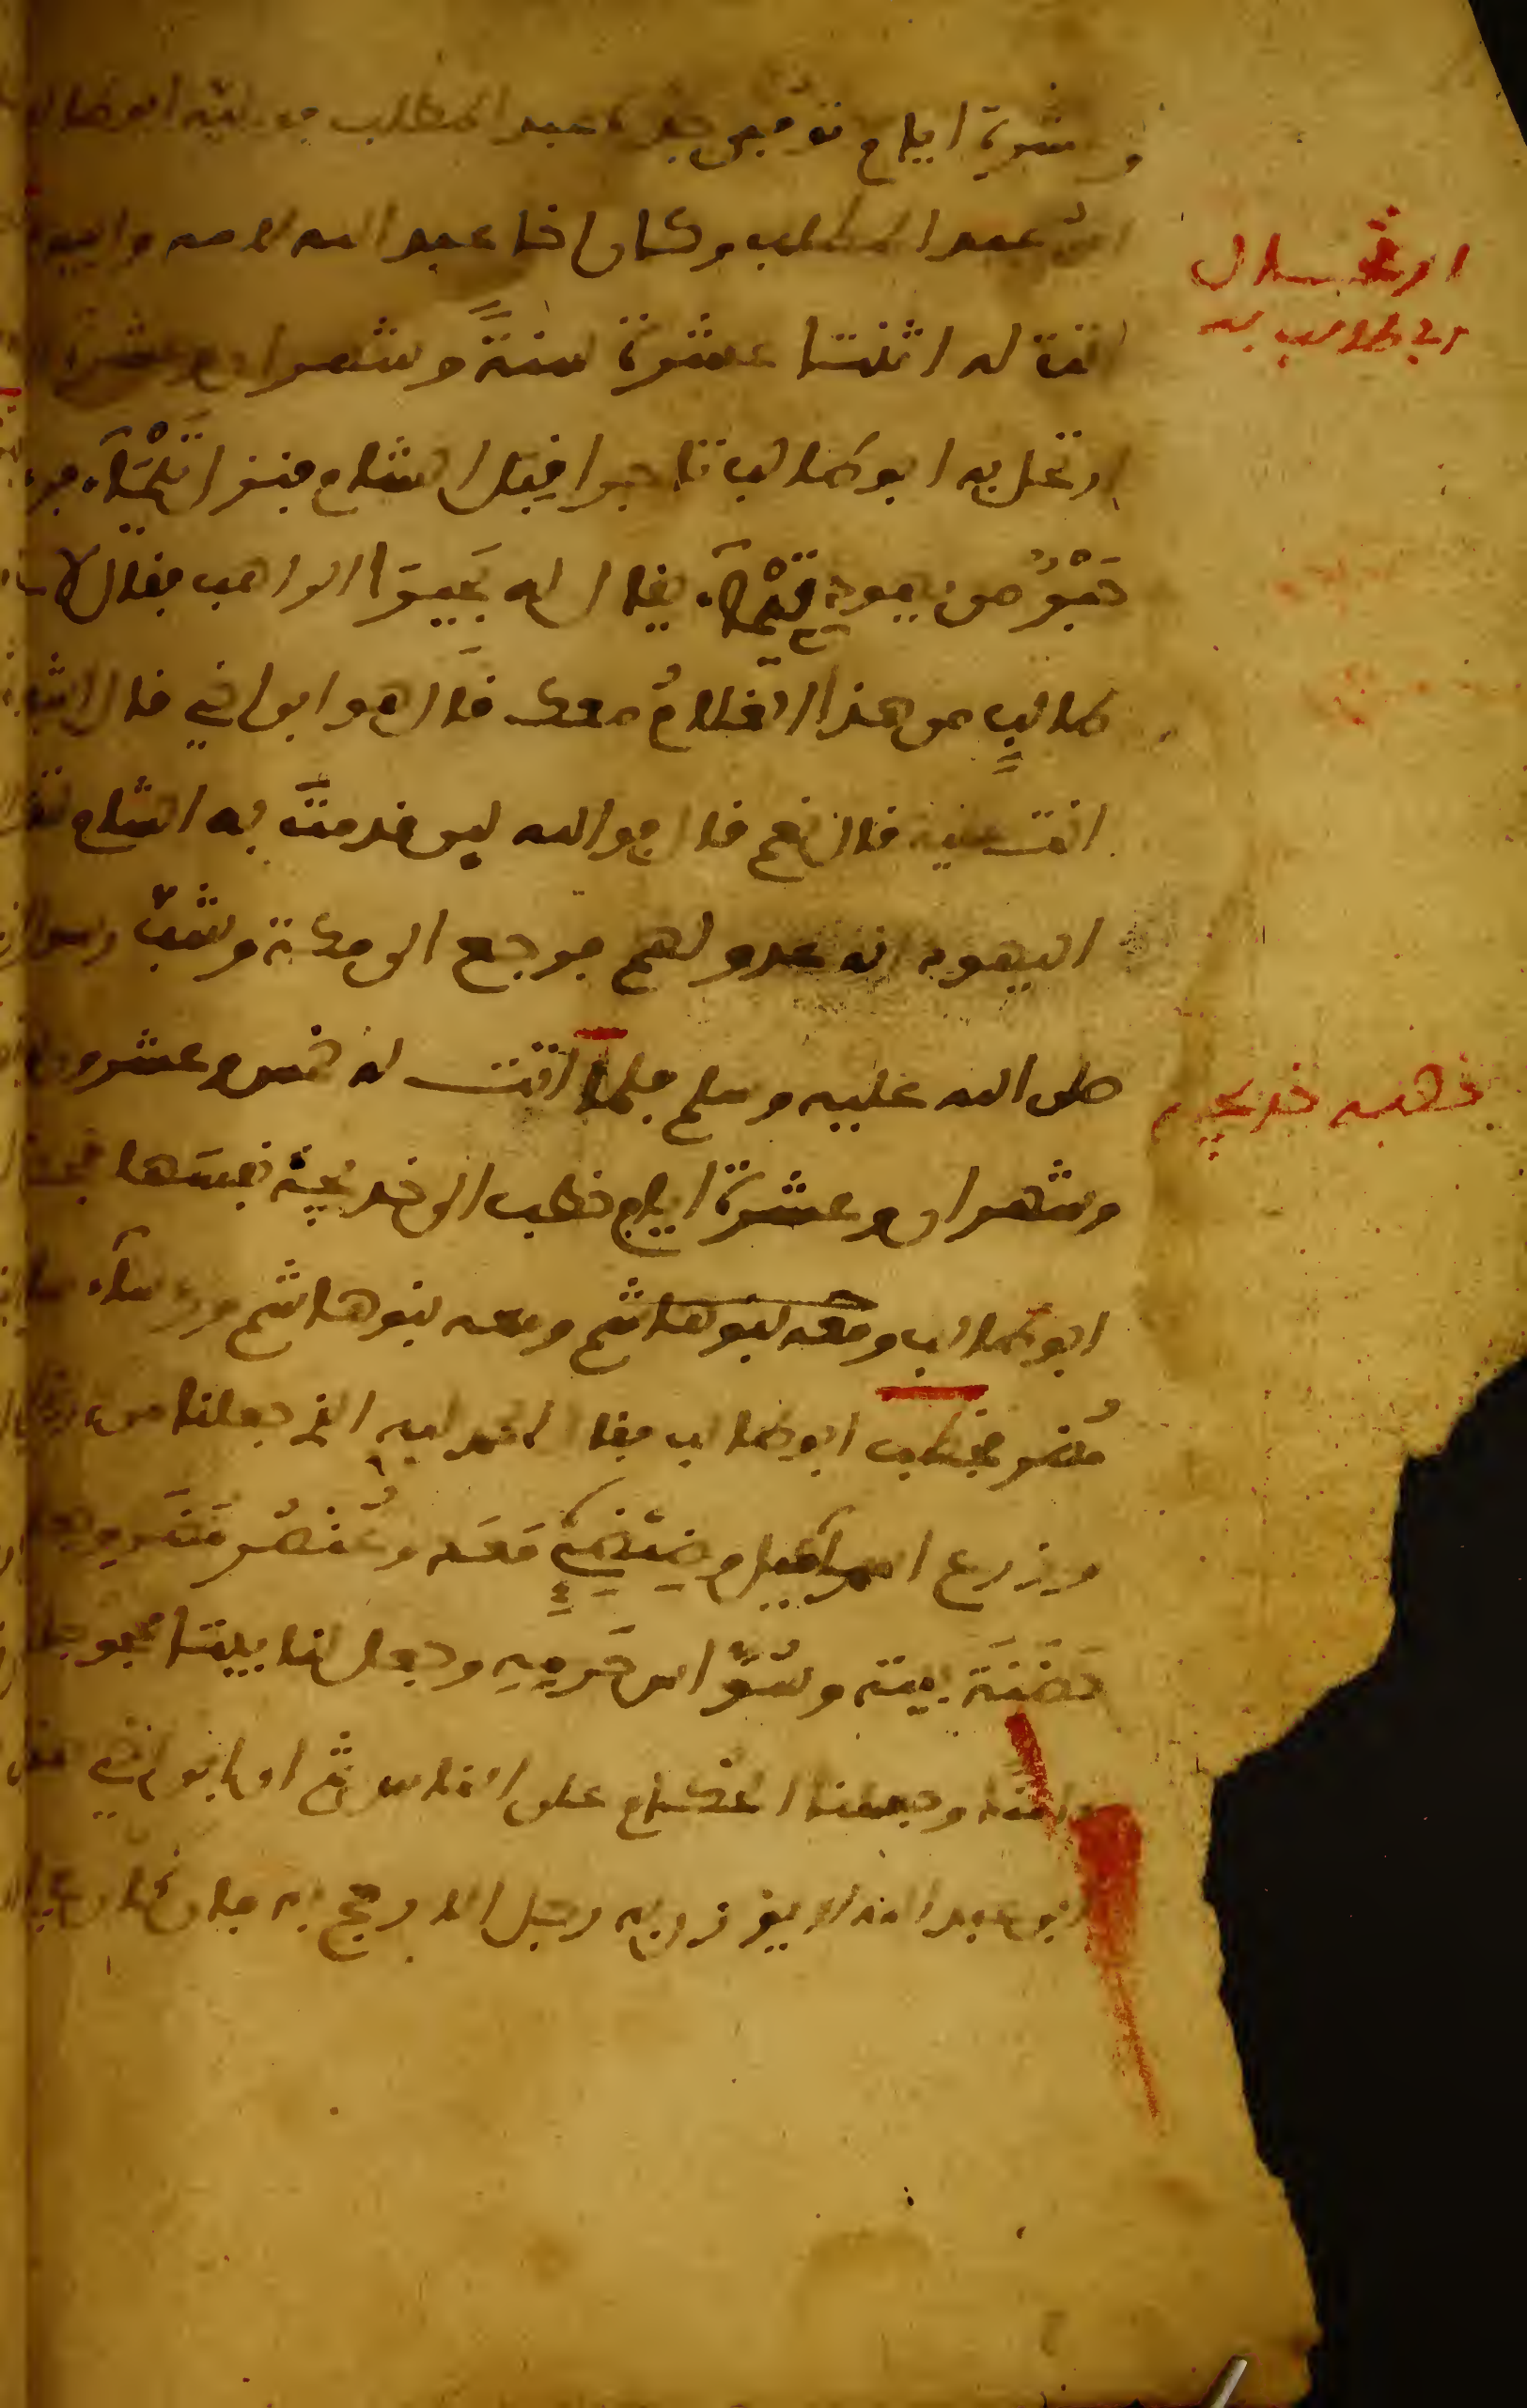 وعشرة ايام توفي جده عبد المطلب فوليه ابو طالب
ابن عبد المطلب وكان اخا عبد الله لامه وابيه
اتت له اثنتا عشرة سنة وشهران وعشرة
ارتحل به ابو طالب تاجرا قبل الشام فنزل تيماء فرءاه
حبر من يهود تيماء يقال له بحيرا الراهب فقال لابي
طالب من هذا الغلام معك قال هو ابن اخي قال اشفيق
انت عليه قال نعم قال فوالله لين قدمت به الشام
اليهود انه عدو لهم فرجع الى مكة وشب رسول
صلى الله عليه وسلم فلما اتت له خمس وعشرون
وشهران وعشرة ايام خطب الى خديجة نفسها
ابو طالب ومعه بنو هاشم ومعه بنو هاشم ورءساء
مضر فخطب ابو طالب فقال الحمد لله الذي جعلنا من
وزرع اسماعيل وضئضئ معد وعنصر مضر وجعلنا
حضنة بيته وسواس حرمه وجعل لنا بيتا محجوجا
وجعلنا الحكام على الناس ثم ان ابن اخي هذا
بن عبد الله لا يوزن به رجل الا رجح به فان كان
ارتحال
ابي طالب به
خديجة